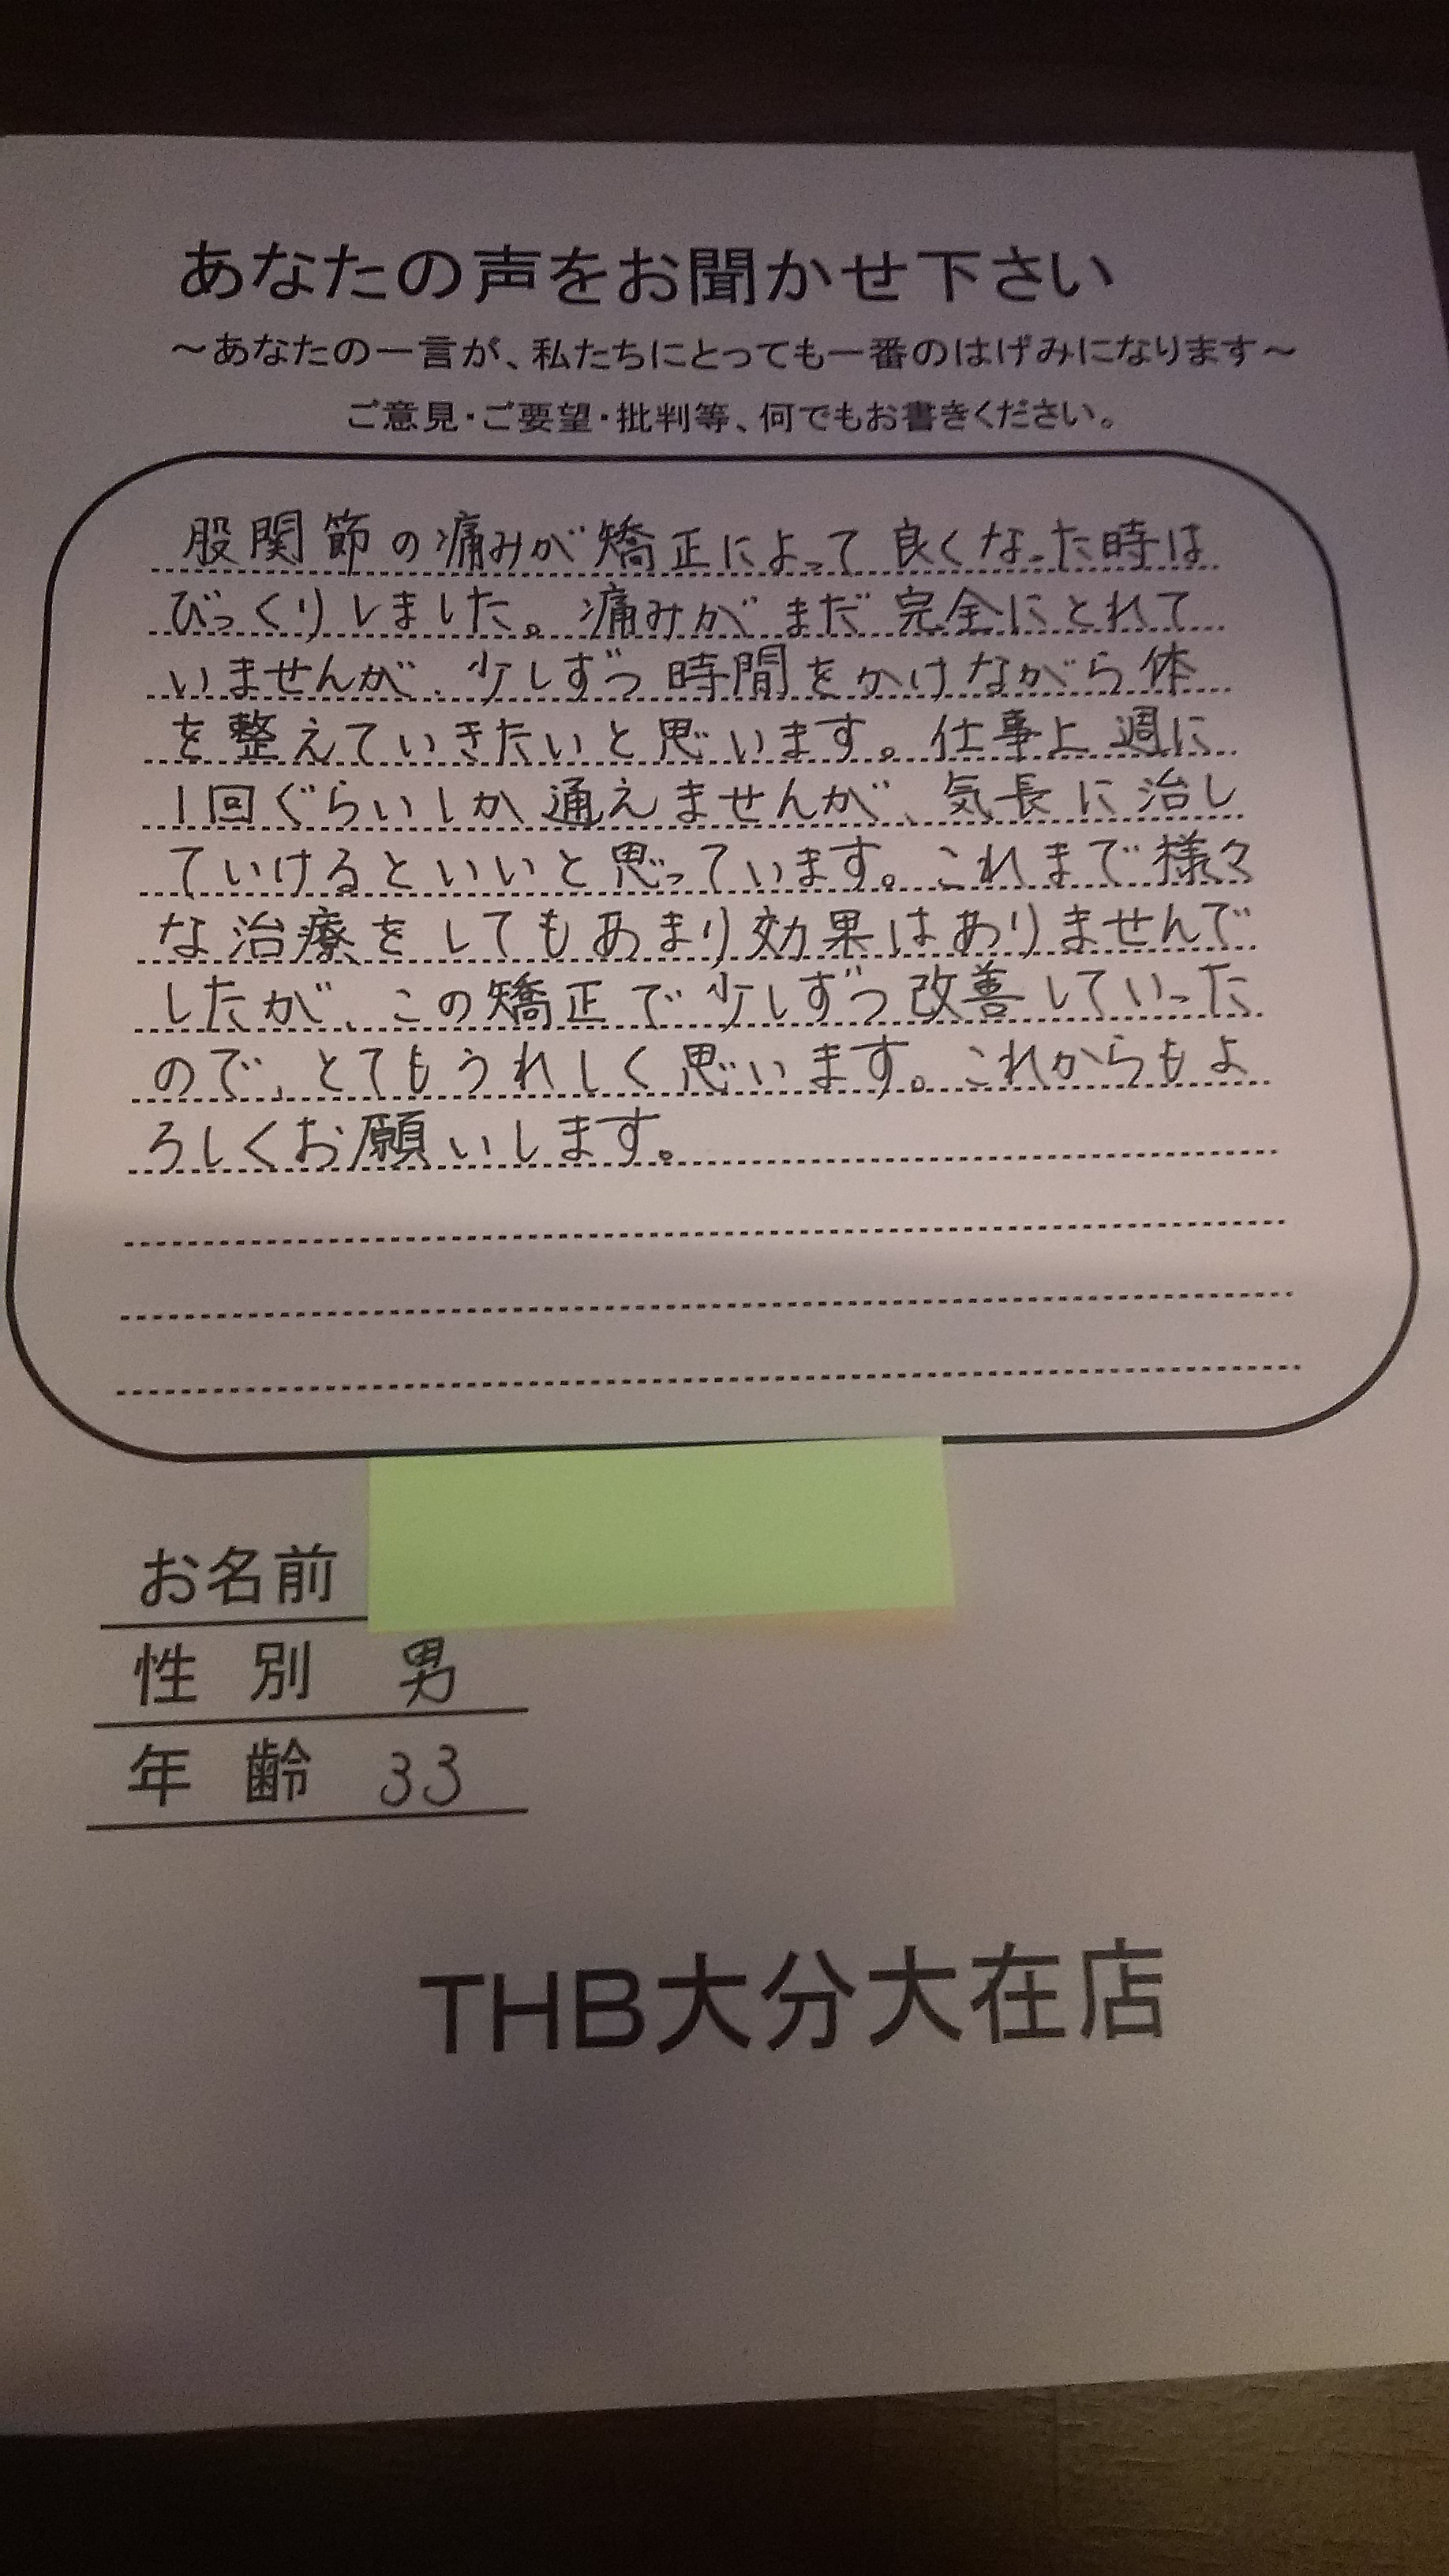 あなたの声をお聞かせ下さい
～あなたの一言が、私たちにとっても一番のはげみになります～
ご意見・ご要望・批判等、何でもお書きください。
股関節の痛みが矯正によって良くなった時は
びっくりしました。痛みがまだ完全にとれて
いませんが、少しずつ時間をかけながら体
を整えていきたいと思います。仕事上週に
1回ぐらいしか通えませんが、気長に治し
ていけるといいと思っています。これまで様々
な治療をしてもあまり効果はありませんで
したが、この矯正で少しずつ改善していった
ので、とてもうれしく思います。これからもよ
ろしくお願いします。
お名前
性別 男
年齢 33
THB大分大在店